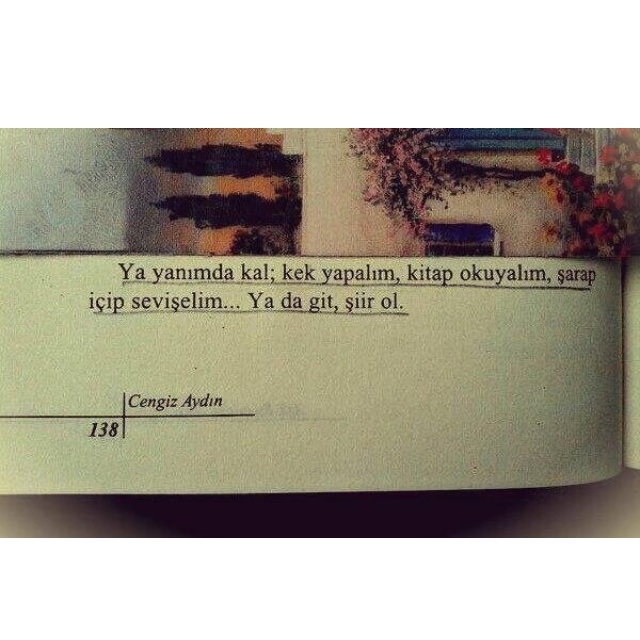 Ya yanımda kal; kek yapalım, kitap okuyalım, şarap
içip sevişelim... Ya da git, şiir ol.
Cengiz Aydın
138